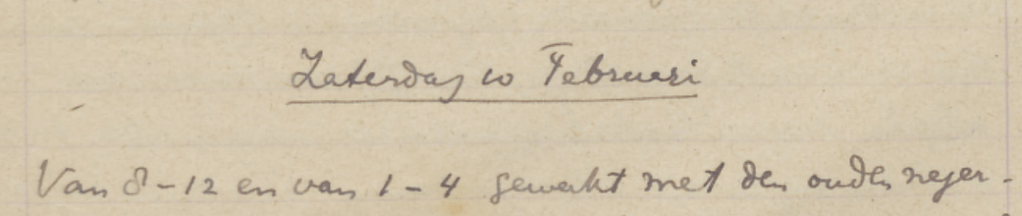 Zaterdag 10 Februari
Van 8-12 en van 1-4 gewerkt met den ouden neger-